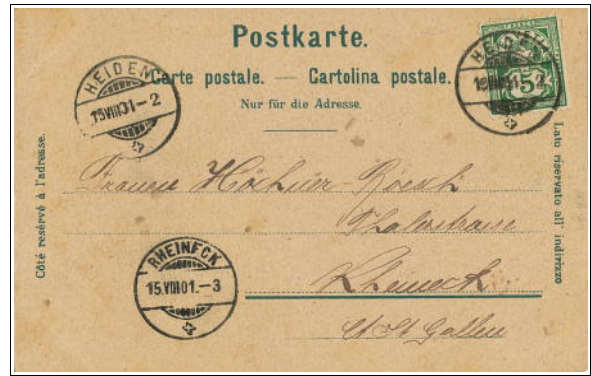 Postkarte.
Carte postale. — Cartolina postale.
Nur für die Adresse.
HEIDEN
15.VIII.01.-2
HEIDEN
15.VIII.01.-2
5
Côté resérvé à l'adresse.
Lato riservato all' indirizzo
Höchner-Roesch
Thalerstrasse
Rheineck
Ct. St. Gallen
RHEINECK
15.VIII.01.-3